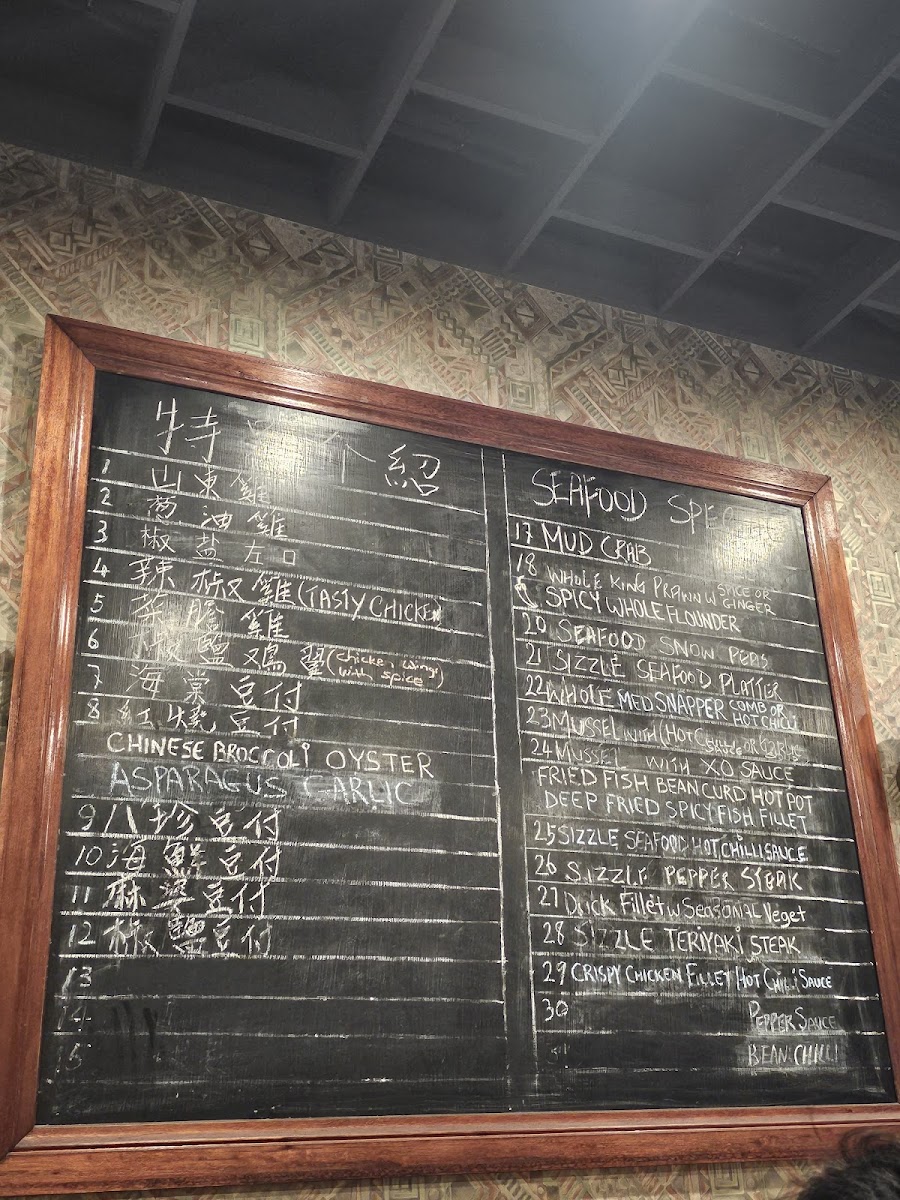 特 介紹
1 山東雞
2 葱油雞
3 椒盐左口
4 辣椒雞 (TASTY CHICKEN)
5 雞
6 椒鹽鸡翼 (chicken wings with spice)
7 海棠豆付
8 紅燒豆付
CHINESE BROCCOLI OYSTER
ASPARAGUS GARLIC
9 八珍豆付
10 海鮮豆付
11 麻婆豆付
12 椒鹽豆付
13
14
15
SEAFOOD
17 MUD CRAB
18 WHOLE KING PRAWN W SPICE OR GINGER
SPICY WHOLE FLOUNDER
20 SEAFOOD SNOW PEAS
21 SIZZLE SEAFOOD PLATTER
22 WHOLE MED SNAPPER COMB OR HOT CHILLI
23 MUSSEL WITH (HOT
24 MUSSEL WITH XO SAUCE
FRIED FISH BEANCURD HOT POT
DEEP FRIED SPICY FISH FILLET
25 SIZZLE SEAFOOD HOT CHILLI SAUCE
26 SIZZLE PEPPER STEAK
27 Duck Fillet w Seasonal Veget
28 SIZZLE TERIYAKI STEAK
29 CRISPY CHICKEN FILLET HOT CHILLI SAUCE
30 PEPPER SAUCE
BEAN CHILLI